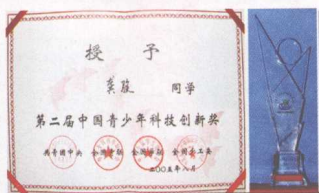 授予
龚 同学
第二届中国青少年科技创新奖
共青团中央 全国青联 全国学联 全国少工委
二〇〇五年八月